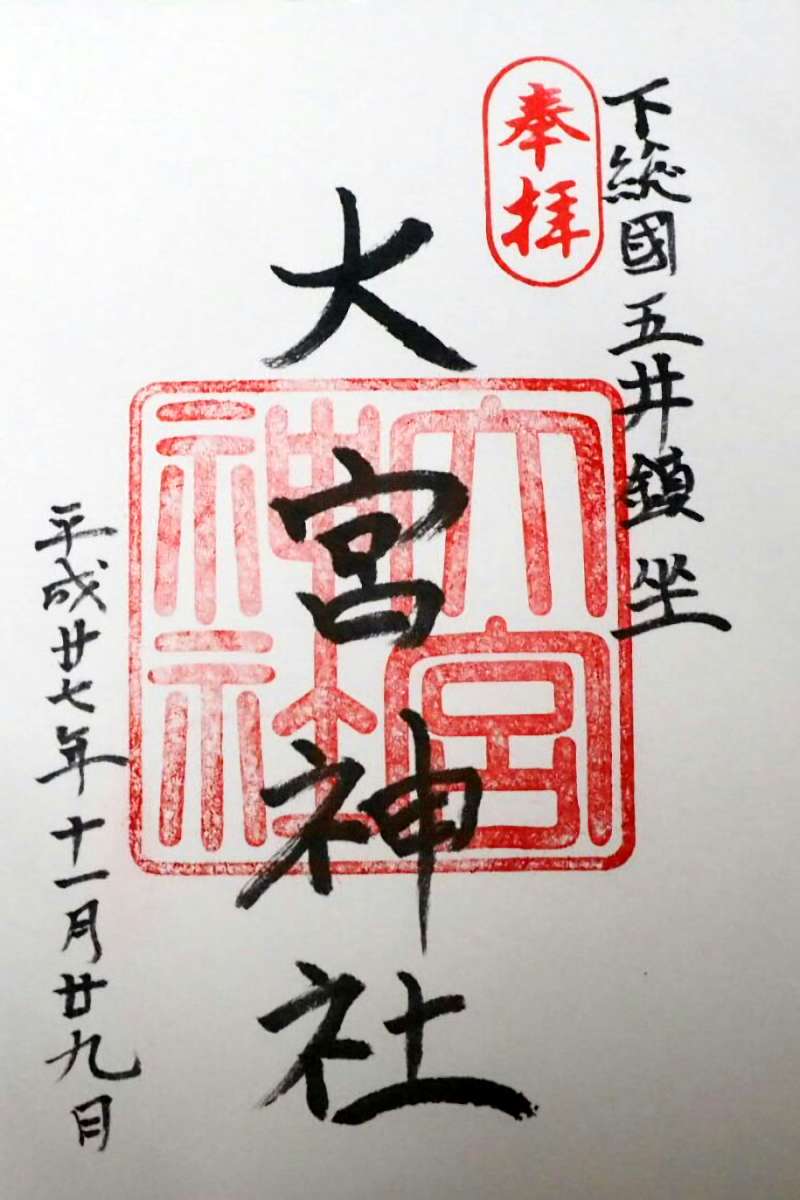 下総國五井鎮坐
奉拝
大宮神社
大宮神社
平成廿七年十一月廿九日